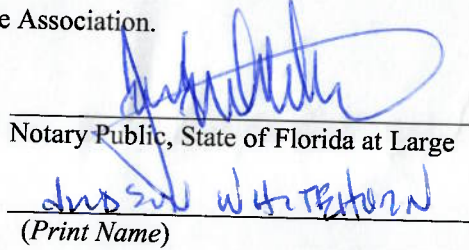 e Association.
Notary Public, State of Florida at Large
JUDSON WHITEHORN
(Print Name)